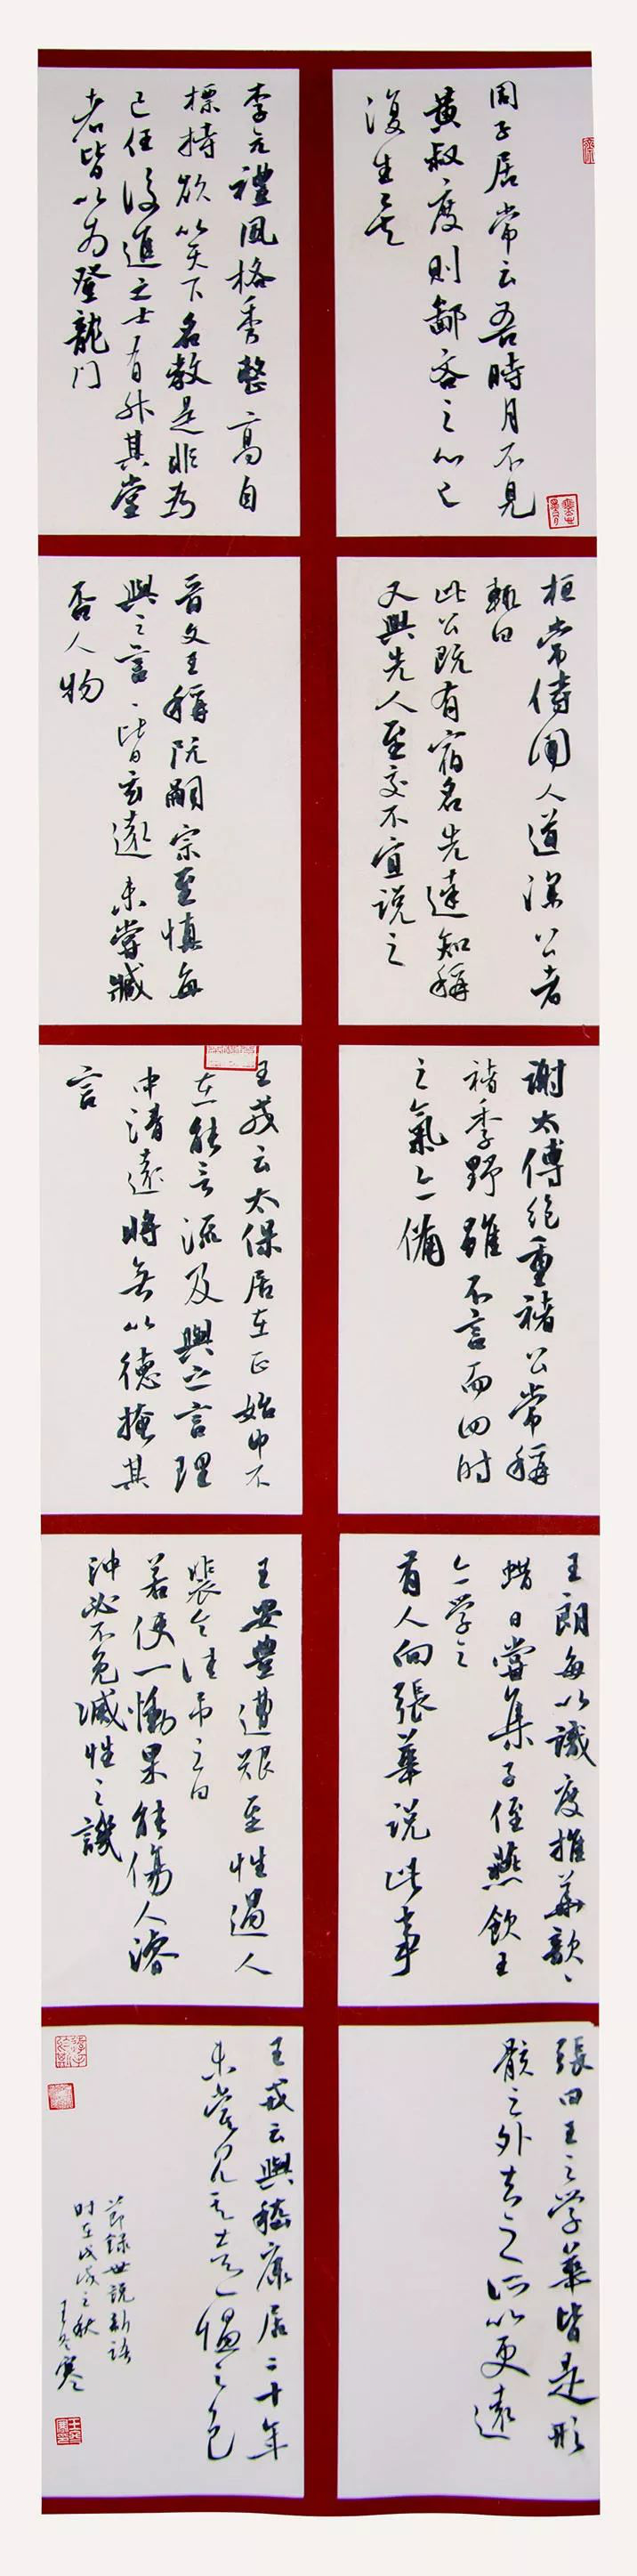 周子居常云吾時月不見
黄叔度則鄙吝之心已
復生矣
李元禮風格秀整高自
標持欲以天下名教是非為
己任後進之士有升其堂
者皆以為登龍门
桓常侍闻人道深公者
輒曰
此公既有宿名先達知稱
又與先人至交不宜説之
晋文王稱阮嗣宗至慎每
與之言言皆玄遠未嘗臧
否人物
謝太傅绝重褚公常稱
褚季野雖不言而四时
之氣亦備
王戎云太保居在正始中不
在能言之流及與之言理
中清遠將無以德掩其
言
王朗每以識度推華歆歆
蜡日嘗集子侄燕飲王
亦学之
有人向張華说此事
王安豐遭艱至性過人
裴令往吊之曰
若使一慟果能傷人濬
沖必不免滅性之譏
張曰王之学華皆是形
骸之外去之所以更遠
王戎云與嵇康居二十年
未嘗见其喜愠之色
節録世説新語
时在戊戌之秋
王冬寒